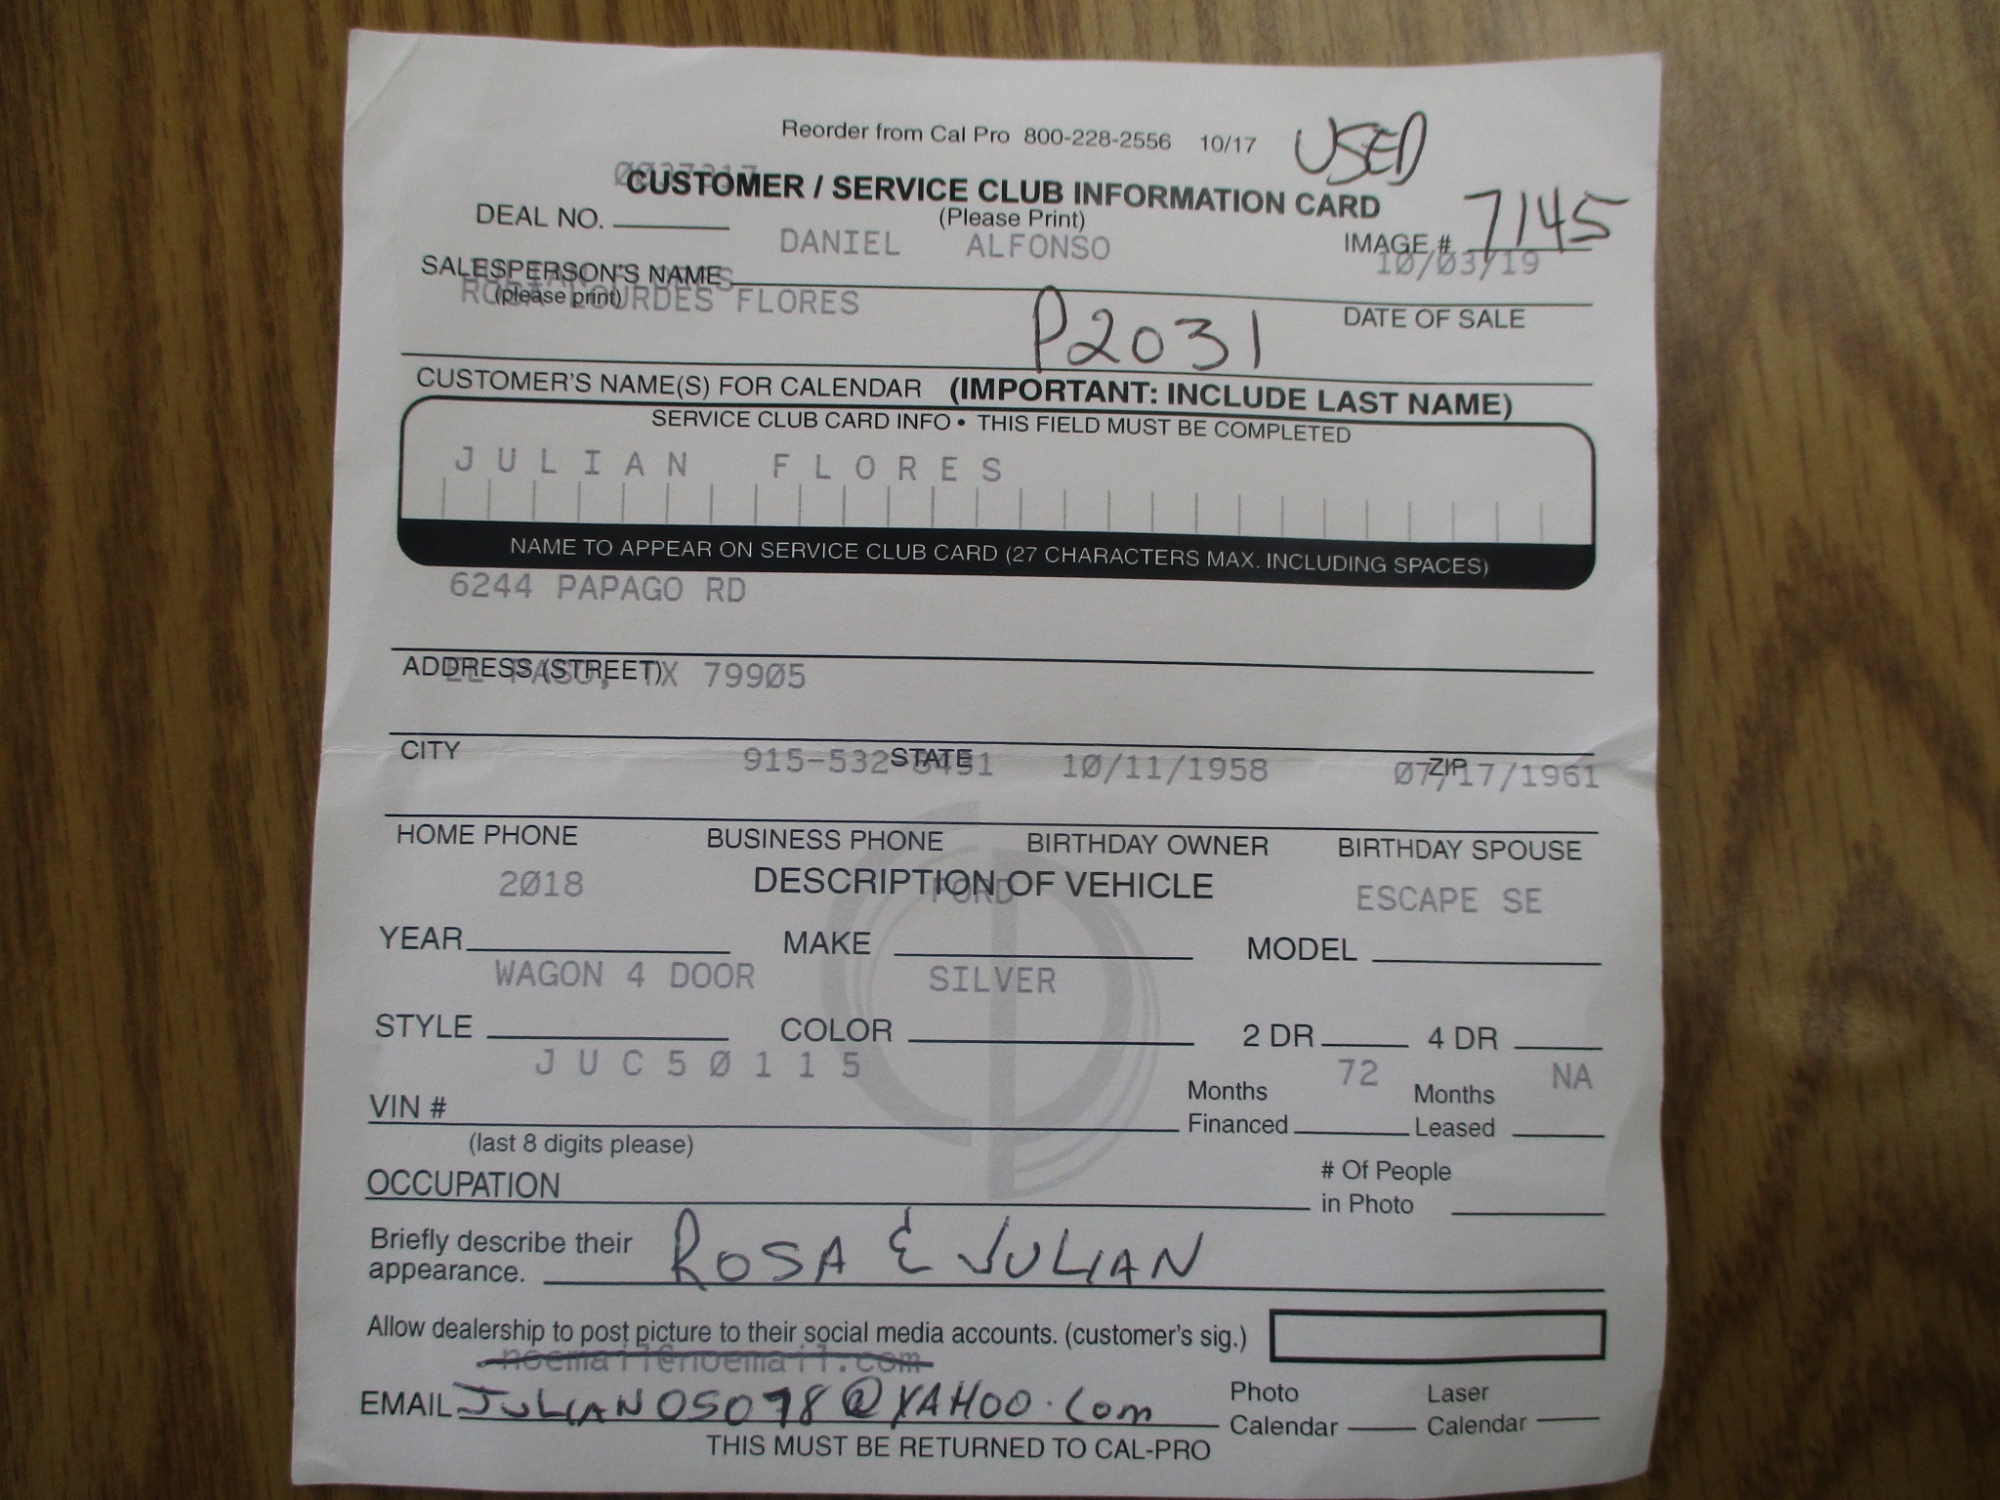 Reorder from Cal Pro 800-228-2556 10/17 USED
CUSTOMER / SERVICE CLUB INFORMATION CARD
(Please Print)
DEAL NO.
DANIEL ALFONSO
IMAGE # 7145
10/03/19
SALESPERSON'S NAME
(please print)
LOURDES FLORES
P2031
DATE OF SALE
CUSTOMER'S NAME(S) FOR CALENDAR (IMPORTANT: INCLUDE LAST NAME)
SERVICE CLUB CARD INFO • THIS FIELD MUST BE COMPLETED
JULIAN FLORES
NAME TO APPEAR ON SERVICE CLUB CARD (27 CHARACTERS MAX. INCLUDING SPACES)
6244 PAPAGO RD
ADDRESS (STREET)
EL PASO, TX 79905
CITY STATE ZIP
10/11/1958 07/17/1961
HOME PHONE BUSINESS PHONE BIRTHDAY OWNER BIRTHDAY SPOUSE
DESCRIPTION OF VEHICLE
2018 FORD ESCAPE SE
YEAR MAKE MODEL
WAGON 4 DOOR SILVER
STYLE COLOR 2 DR 4 DR
JUC50115
VIN #
(last 8 digits please)
Months Financed 72 Months Leased NA
OCCUPATION
# Of People in Photo
Briefly describe their appearance. ROSA & JULIAN
Allow dealership to post picture to their social media accounts. (customer's sig.)
noemail@noemail.com
EMAIL JULIAN05078@YAHOO.com
Photo Calendar Laser Calendar
THIS MUST BE RETURNED TO CAL-PRO